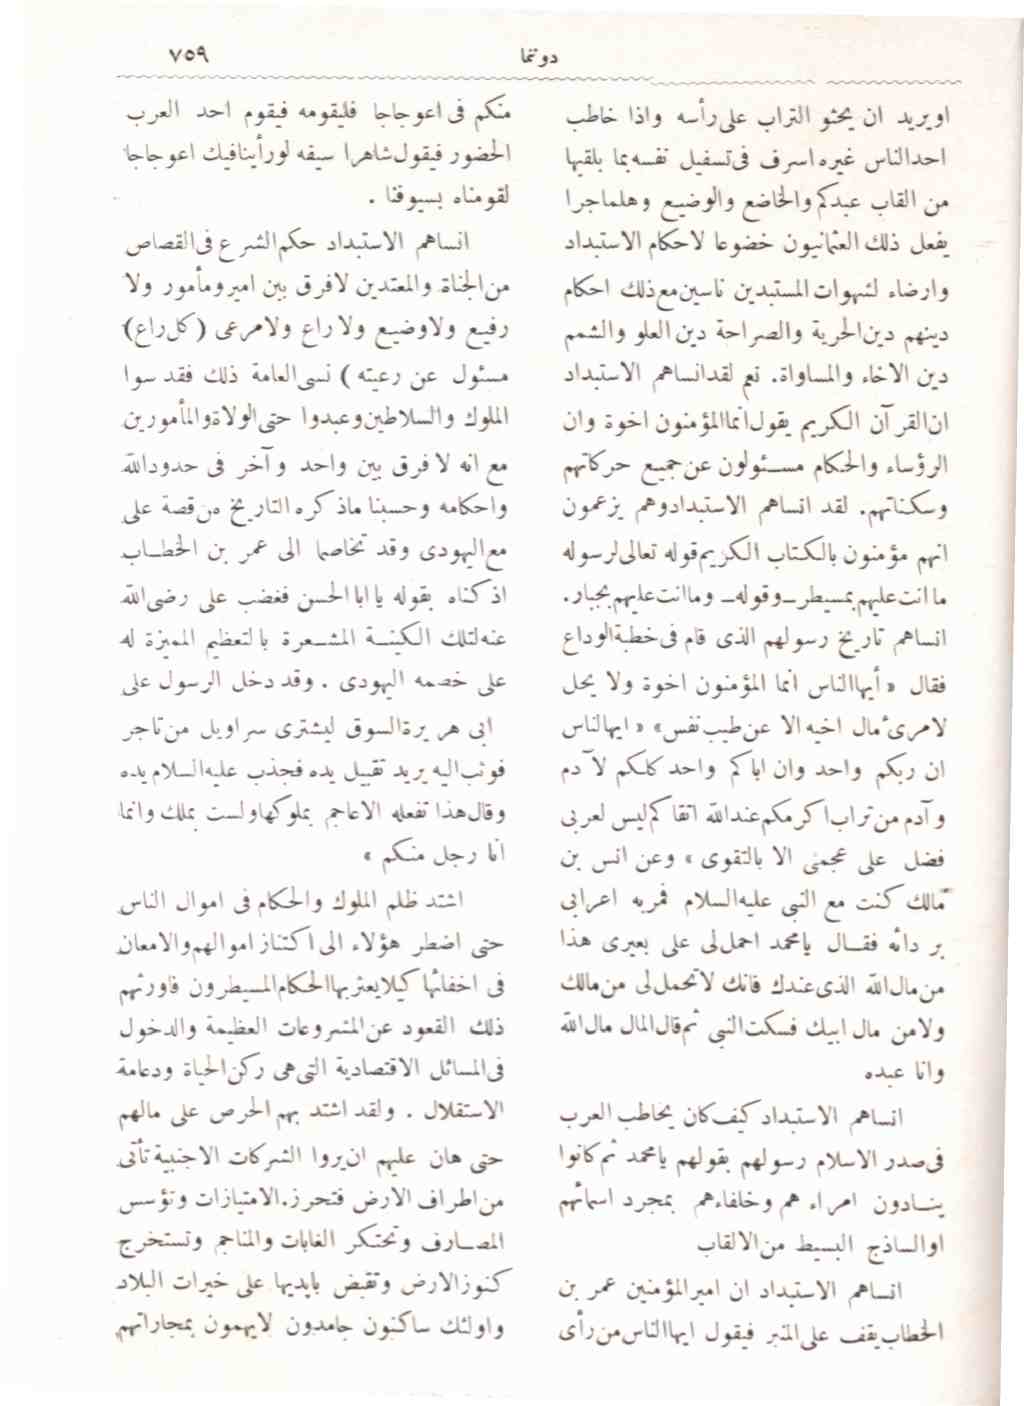 دوتنما
٧٥٩
او يريد ان يحثو التراب على رأسه واذا خاطب
احد الناس غيره اسرف فى تسفيل نفسه بما يلقبها
من القاب عبدكم والخاضع والوضيع وهلماجرا
يفعل ذلك العثمانيون خضوعا لاحكام الاستبداد
وارضاء لشهوات المستبدين ناسين مع ذلك احكام
دينهم دين الحرية والصراحة دين العلو والشمم
دين الاخاء والمساواة. نعم لقد انساهم الاستبداد
ان القرآن الكريم يقول انما المؤمنون اخوة وان
الرؤساء والحكام مسئولون عن جميع حركاتهم
وسكناتهم. لقد انساهم الاستبداد وهم يزعمون
انهم مؤمنون بالكتاب الكريم قوله تعالى لرسوله
ما انت عليهم بمسيطر ــ وقوله ــ وما انت عليهم بجبار.
انساهم تاريخ رسولهم الذى قام فى خطبة الوداع
فقال « أيها الناس انما المؤمنون اخوة ولا يحل
لامرئ مال اخيه الا عن طيب نفس» « ايها الناس
ان ربكم واحد وان اباكم واحد كلكم لآدم
وآدم من تراب اكرمكم عند الله اتقاكم ليس لعربى
فضل على عجمى الا بالتقوى » وعن انس بن
مالك كنت مع النبى عليه السلام فمر به اعرابى
بردائه فقال يا محمد احمل لى على بعيرى هذا
من مال الله الذى عندك فانك لا تحمل لى من مالك
ولا من مال ابيك فسكت النبى ثم قال المال مال الله
وانا عبده
انساهم الاستبداد كيف كان يخاطب العرب
فى صدر الاسلام رسولهم بقولهم يا محمد ثم كانوا
ينادون امراءهم وخلفاءهم بمجرد اسمائهم
او الساذج البسيط من الالقاب
انساهم الاستبداد ان امير المؤمنين عمر بن
الخطاب يقف على المنبر فيقول ايها الناس من رأى
منكم فى اعوجاجا فليقومه فيقوم احد العرب
الحضور فيقول شاهرا سيفه لو رأينا فيك اعوجاجا
لقومناه بسيوفنا .
انساهم الاستبداد حكم الشرع فى القصاص
من الجناة والمعتدين لا فرق بين امير ومأمور ولا
رفيع ولا وضيع ولا راع ولا مرعى (كل راع
مسئول عن رعيته ) نسى العامة ذلك فقدسوا
الملوك والسلاطين وعبدوا حتى الولاة والمأمورين
مع انه لا فرق بين واحد وآخر فى حدود الله
واحكامه وحسبنا ما ذكره التاريخ من قصة على
مع اليهودى وقد تخاصما الى عمر بن الخطاب
اذ كناه بقوله يا ابا الحسن فغضب على رضى الله
عنه لتلك الكينة المشعرة بالتعظيم المميزة له
على خصمه اليهودى . وقد دخل الرسول على
ابى هريرة السوق ليشترى سراويل من تاجر
فوثب اليه يريد تقبيل يده فجذب عليه السلام يده
وقال هذا تفعله الاعاجم بملوكها ولست بملك وانما
انا رجل منكم »
اشتد ظلم الملوك والحكام فى اموال الناس
حتى اضطر هؤلاء الى اكتناز اموالهم والامعان
فى اخفائها كيلا يعثر بها الحكام المسيطرون فاورثهم
ذلك القعود عن المشروعات العظيمة والدخول
فى المسائل الاقتصادية التى هى ركن الحياة ودعامة
الاستقلال . ولقد اشتد بهم الحرص على مالهم
حتى هان عليهم ان يروا الشركات الاجنبية تأتى
من اطراف الارض فتحرز الامتيازات وتؤسس
المصارف وتحتكر الغابات والمناجم وتستخرج
كنوز الارض وتقبض بايديها على خيرات البلاد
واولئك ساكنون جامدون لا يهمون بمجاراتهم